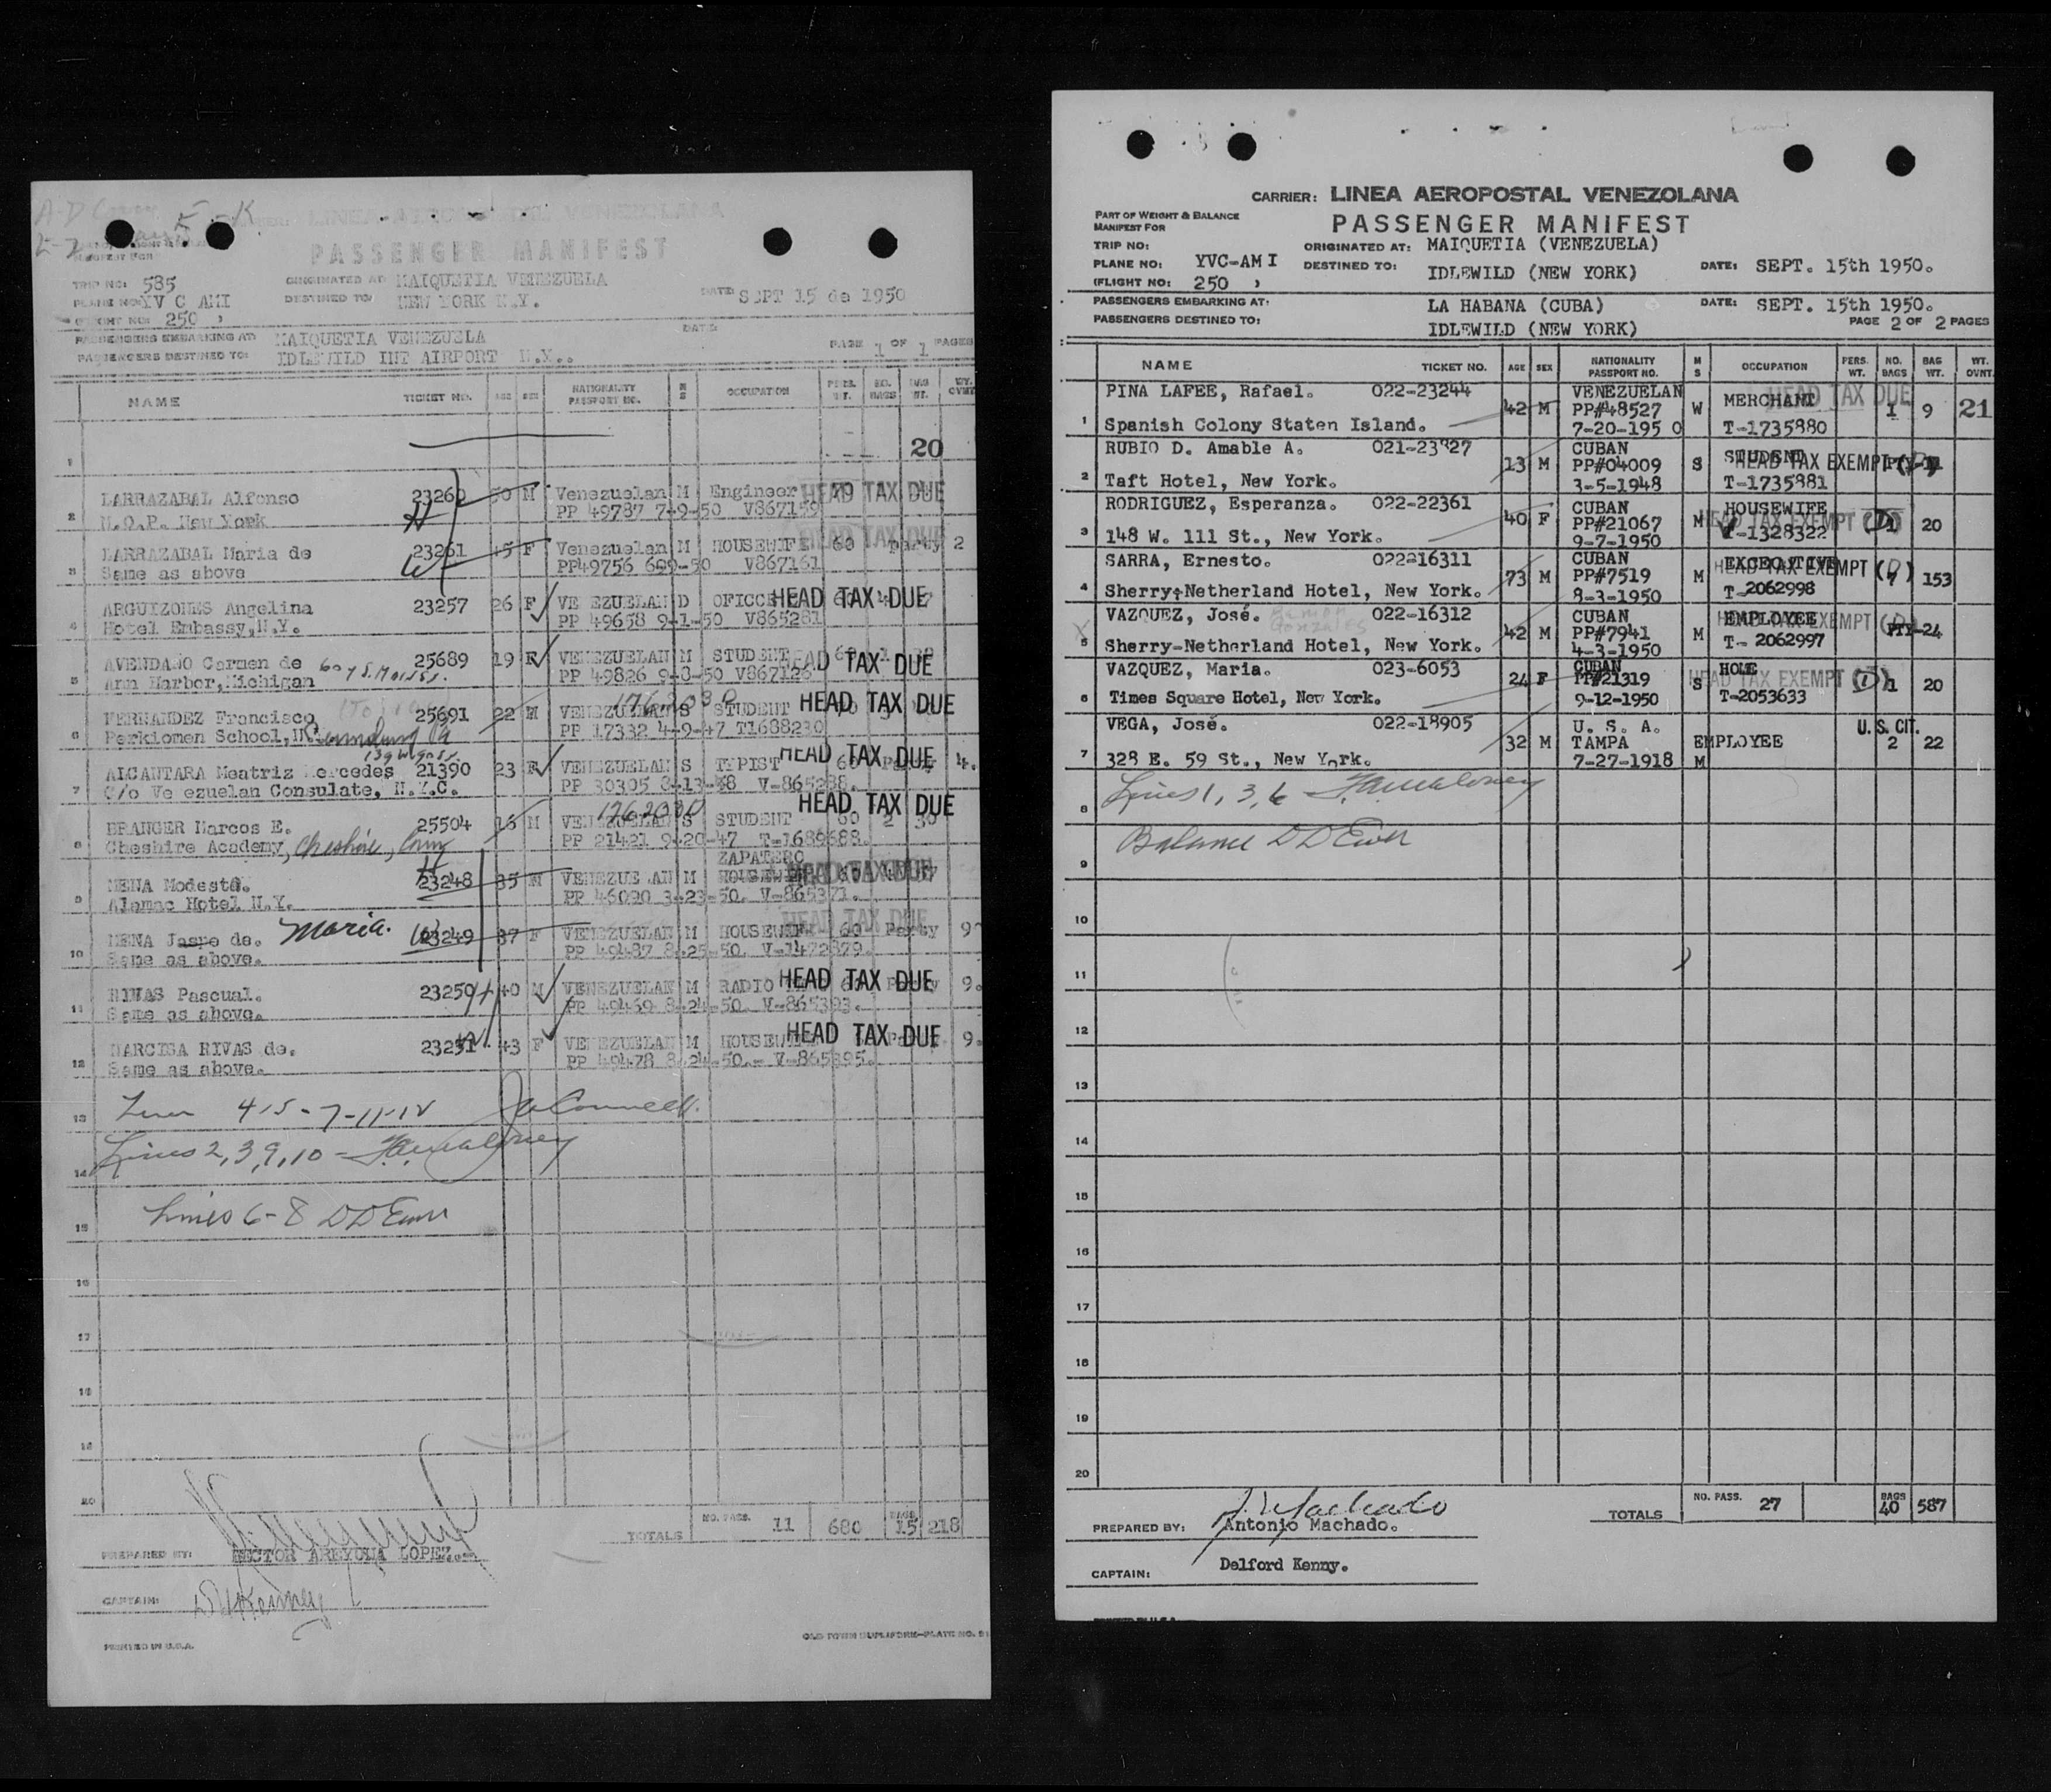 LINEA AEROPOSTAL VENEZOLANA
PASSENGER MANIFEST
TRIP NO: 585
ORIGINATED AT: MAIQUETIA VENEZUELA
PLANE NO: YV C AMI
DESTINED TO: NEW YORK N.Y.
DATE: SEPT 15 de 1950
FLIGHT NO: 250 )
PASSENGERS EMBARKING AT: MAIQUETIA VENEZUELA
DATE:
PASSENGERS DESTINED TO: IDLEWILD INT AIRPORT N.Y..
PAGE 1 OF 1 PAGES
NAME TICKET NO. AGE SEX NATIONALITY PASSPORT NO. M S OCCUPATION PERS. WT. NO. BAGS BAG WT. WT. OVNT.
1 20
2 LARRAZABAL Alfonso 23260 50 M Venezuelan M Engineer HEAD TAX DUE
N.Y. New York PP 49787 7-9-50 V867159
3 LARRAZABAL Maria de 23261 45 F Venezuelan M HOUSEWIFE 60 Party 2 HEAD TAX DUE
Same as above V867161
4 ARGUIZONES Angelina 23257 26 F VE EZUELAN D HEAD TAX DUE
Hotel Embassy, N.Y. PP 49658 9-1-50 V865281
5 AVENDAÑO Carmen de 25689 19 F VENEZUELAN M STUDENT HEAD TAX DUE
Ann Harbor, Michigan PP 49826 9-8-50 V867126
6 HERNANDEZ Francisco 25691 22 M VENEZUELAN S STUDENT HEAD TAX DUE
Perkiomen School, PP 17332 4-9-47 T1688230
7 ALCANTARA Meatriz Mercedes 21390 23 F VENEZUELAN S TYPIST HEAD TAX DUE 4.
C/o Ve ezuelan Consulate, N.Y.C. PP 30305 8-13-48 V-865288.
8 BRANGER Marcos E. 25504 16 M VENEZUELAN S STUDENT 60 2 30 HEAD TAX DUE
1762030
Cheshire Academy, Cheshire, Conn PP 21421 9-20-47 T-1689688.
ZAPATERO
9 MENA Modesto. 23248 35 M VENEZUE AN M HEAD TAX DUE
Alamac Hotel N.Y. PP 46090 3-23-50. V-865371.
10 MENA Jaspe de. Maria. 23249 37 F VENEZUELAN M HOUSEWIFE 60 Party 9 HEAD TAX DUE
Same as above. PP 49487 8-25-50. V-1472879.
11 RIVAS Pascual. 23250 40 M VENEZUELAN M RADIO HEAD TAX DUE 9.
Same as above. PP 49469 8-24-50. V-865393.
12 NARCISA RIVAS de. 23251 43 F VENEZUELAN M HOUSEWIFE HEAD TAX DUE 9.
Same as above. PP 49478 8-24-50.- V-865395.
13 4-5-7-11-12
14 Lines 2,3,9,10 - F.A. Maloney
15 Lines 6-8 D D Ewer
16
17
18
19
20
TOTALS NO. PASS. 11 680 BAGS 15 218
PREPARED BY: HECTOR LOPEZ
CAPTAIN:
PRINTED IN U.S.A.
CARRIER: LINEA AEROPOSTAL VENEZOLANA
PART OF WEIGHT & BALANCE
MANIFEST FOR
PASSENGER MANIFEST
TRIP NO:
ORIGINATED AT: MAIQUETIA (VENEZUELA)
PLANE NO: YVC-AM I
DESTINED TO: IDLEWILD (NEW YORK)
DATE: SEPT. 15th 1950.
(FLIGHT NO: 250 )
PASSENGERS EMBARKING AT: LA HABANA (CUBA)
DATE: SEPT. 15th 1950.
PASSENGERS DESTINED TO: IDLEWILD (NEW YORK)
PAGE 2 OF 2 PAGES
NAME TICKET NO. AGE SEX NATIONALITY PASSPORT NO. M S OCCUPATION PERS. WT. NO. BAGS BAG WT. WT. OVNT.
PINA LAFEE, Rafael. 022-23244 VENEZUELAN HEAD TAX DUE
1 42 M PP#48527 W MERCHANT 1 9 21
Spanish Colony Staten Island. 7-20-195 0 T-1735880
RUBIO D. Amable A. 021-23827 CUBAN
2 13 M PP#04009 S STUDENT HEAD TAX EXEMPT
Taft Hotel, New York. 3-5-1948 T-1735881
RODRIGUEZ, Esperanza. 022-22361 CUBAN HOUSEWIFE
3 40 F PP#21067 M HEAD TAX EXEMPT 20
148 W. 111 St., New York. 9-7-1950 T-1328322
SARRA, Ernesto. 022-16311 CUBAN EXCECUTIVE
4 73 M PP#7519 M HEAD TAX EXEMPT 153
Sherry-Netherland Hotel, New York. 8-3-1950 T-2062998
VAZQUEZ, José. Ramon Gonzales 022-16312 CUBAN EMPLOYEE
5 42 M PP#7941 M HEAD TAX EXEMPT PTY-24
Sherry-Netherland Hotel, New York. 4-3-1950 T- 2062997
VAZQUEZ, Maria. 023-6053 CUBAN HOME
6 24 F PP#21319 S HEAD TAX EXEMPT 1 20
Times Square Hotel, New York. 9-12-1950 T-2053633
VEGA, José. 022-18905 U. S. A. U.S. CIT.
7 32 M TAMPA EMPLOYEE 2 22
328 E. 59 St., New York. 7-27-1918 M
8 Lines 1, 3, 6 F.A. Maloney
9 Balance D D Ewer
10
11
12
13
14
15
16
17
18
19
20
TOTALS NO. PASS. 27 BAGS 40 587
PREPARED BY: Antonio Machado.
CAPTAIN: Delford Kenny.